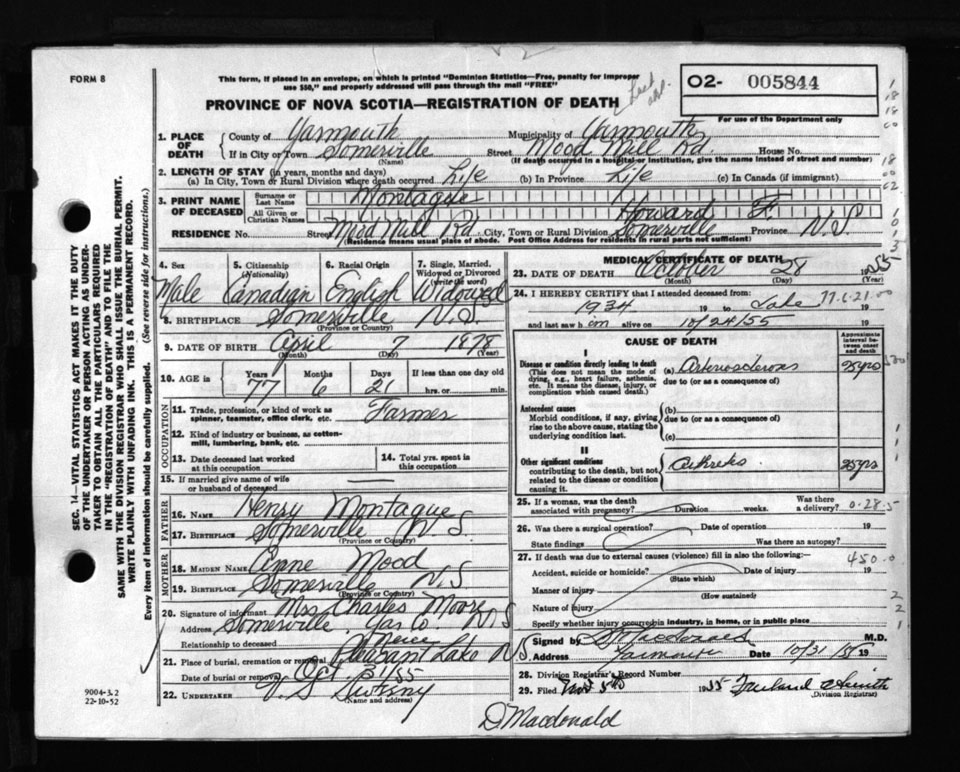 FORM 8
This form, if placed in an envelope, on which is printed "Dominion Statistics—Free, penalty for improper
use $50," and properly addressed will pass through the mail "FREE"
PROVINCE OF NOVA SCOTIA—REGISTRATION OF DEATH
02- 005844
For use of the Department only
1. PLACE OF DEATH
County of Yarmouth Municipality of Yarmouth
If in City or Town Somerville (Name) Street Mood Mill Rd. House No.
(If death occurred in a hospital or institution, give the name instead of street and number)
2. LENGTH OF STAY (in years, months and days)
(a) In City, Town or Rural Division where death occurred Life (b) In Province Life (c) In Canada (if immigrant)
3. PRINT NAME OF DECEASED
Surname or Last Name Montague
All Given or Christian Names Howard F.
RESIDENCE No. Street Mood Mill Rd. City, Town or Rural Division Somerville Province N.S.
(Residence means usual place of abode. Post Office Address for residents in rural parts not sufficient)
4. Sex Male
5. Citizenship (Nationality) Canadian
6. Racial Origin English
7. Single, Married, Widowed or Divorced (write the word) Widowed
8. BIRTHPLACE Somerville N.S.
(Province or Country)
9. DATE OF BIRTH April 7 1878
(Month) (Day) (Year)
10. AGE in Years 77 Months 6 Days 21 If less than one day old
hrs. or min.
OCCUPATION
11. Trade, profession, or kind of work as spinner, teamster, office clerk, etc. Farmer
12. Kind of industry or business, as cotton-mill, lumbering, bank, etc.
13. Date deceased last worked at this occupation
14. Total yrs. spent in this occupation
15. If married give name of wife or husband of deceased
FATHER
16. NAME Henry Montague
17. BIRTHPLACE Somerville N.S.
(Province or Country)
MOTHER
18. MAIDEN NAME Anne Mood
19. BIRTHPLACE Somerville N.S
(Province or Country)
20. Signature of informant Mrs Charles Moore
Address Somerville Yar Co. N.S
Relationship to deceased Neice
21. Place of burial, cremation or removal Pleasant Lake N.S.
Date of burial or removal Oct. 31/55
22. UNDERTAKER
(Name and address)
MEDICAL CERTIFICATE OF DEATH
23. DATE OF DEATH October 28 1955
(Month) (Day) (Year)
24. I HEREBY CERTIFY that I attended deceased from:
1934 19 to 19
and last saw him alive on 10/24/55 19
CAUSE OF DEATH
Approximate interval between onset and death
I
Disease or condition directly leading to death
(This does not mean the mode of dying, e.g., heart failure, asthenia, etc. It means the disease, injury, or complication which caused death.)
(a) Arteriosclerosis 25 yrs
due to (or as a consequence of)
Antecedent causes
Morbid conditions, if any, giving rise to the above cause, stating the underlying condition last.
(b)
due to (or as a consequence of)
(c)
II
Other significant conditions
contributing to the death, but not related to the disease or condition causing it.
Arthritis. 25 yrs
25. If a woman, was the death associated with pregnancy? Duration weeks. Was there a delivery?
26. Was there a surgical operation? Date of operation 19
State findings Was there an autopsy?
27. If death was due to external causes (violence) fill in also the following:—
Accident, suicide or homicide? Date of injury 19
(State which)
Manner of injury
(How sustained)
Nature of injury
Specify whether injury occurred in industry, in home, or in public place
Signed by M.D.
Address Yarmouth Date 10/31 19
28. Division Registrar's Record Number
29. Filed Nov 5th 1955
(Division Registrar)
D Macdonald
9004-3.2
22-10-52
SEC. 14—VITAL STATISTICS ACT MAKES IT THE DUTY
OF THE UNDERTAKER OR PERSON ACTING AS UNDERTAKER
TO OBTAIN ALL THE PARTICULARS REQUIRED
IN THE "REGISTRATION OF DEATH" AND TO FILE THE
SAME WITH THE DIVISION REGISTRAR WHO SHALL ISSUE THE BURIAL PERMIT.
WRITE PLAINLY WITH UNFADING INK. THIS IS A PERMANENT RECORD.
Every item of information should be carefully supplied. (See reverse side for instructions.)